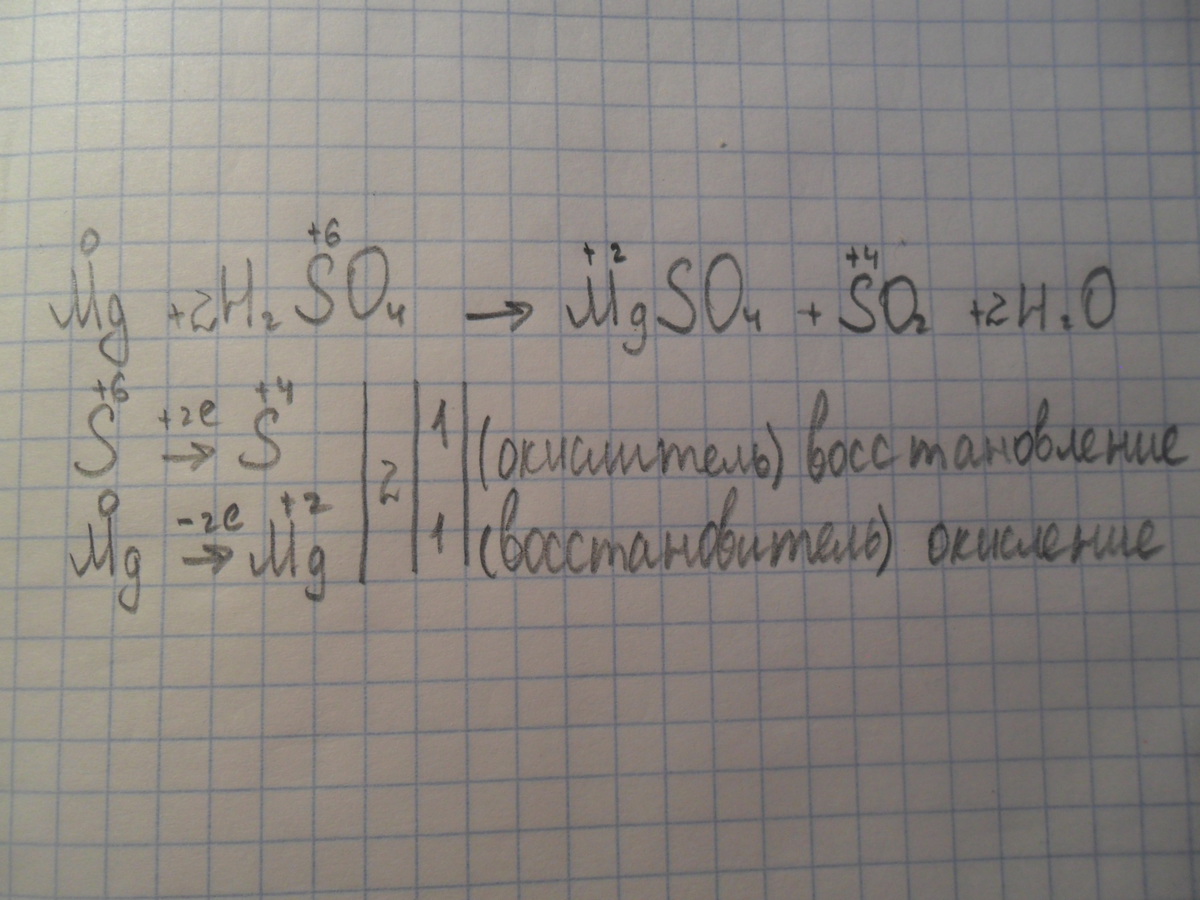 0 +6 +2 +4
Mg + 2H₂SO₄ → MgSO₄ + SO₂ + 2H₂O
+6 +2e +4
S → S | 2 | 1 | (окислитель) восстановление
0 -2e +2
Mg → Mg | 1 | (восстановитель) окисление